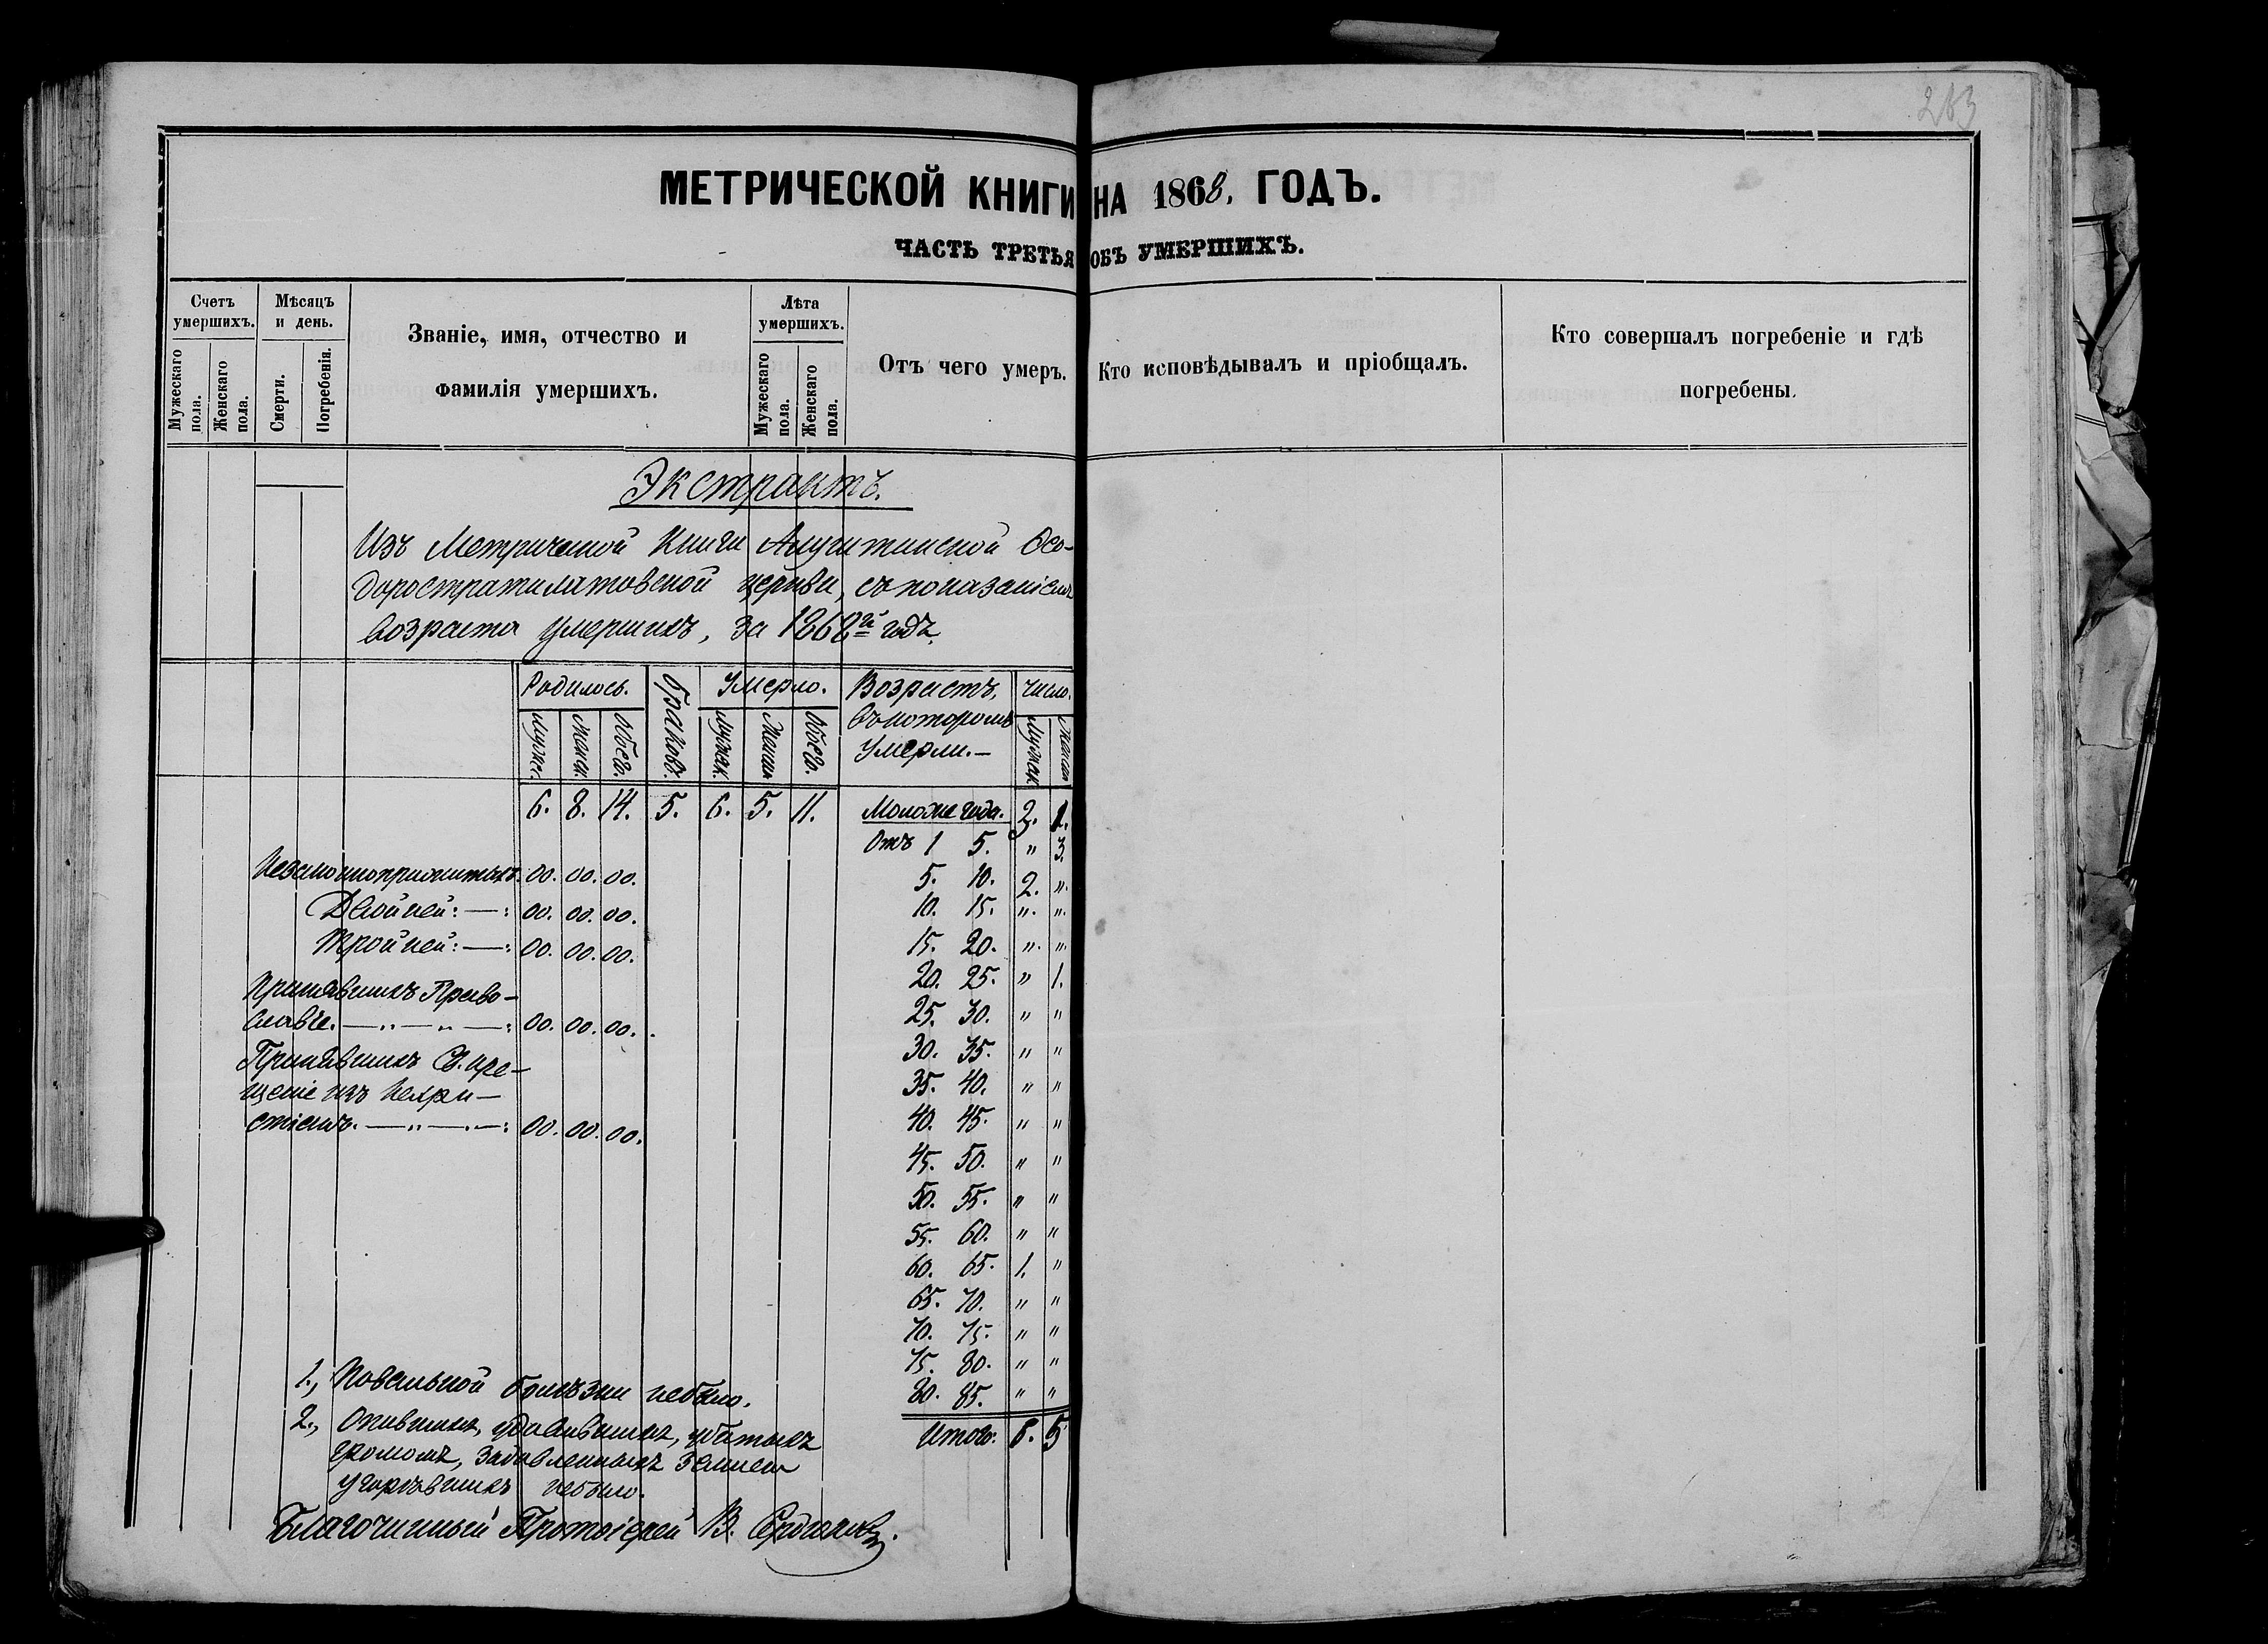 263
МЕТРИЧЕСКОЙ КНИГИ НА 1868. ГОДЪ.
ЧАСТЬ ТРЕТЬЯ ОБЪ УМЕРШИХЪ.
Счетъ умершихъ.
Мужескаго пола.
Женскаго пола.
Мѣсяцъ и день.
Смерти.
Погребенія.
Званіе, имя, отчество и
фамилія умершихъ.
Лѣта умершихъ.
Мужескаго пола.
Женскаго пола.
Отъ чего умеръ.
Кто исповѣдывалъ и пріобщалъ.
Кто совершалъ погребеніе и гдѣ
погребены.
Экстрактъ.
Изъ Метрической Книги Алуштинской Ѳео-
доростратилатовской церкви, съ показаніемъ
возраста умершихъ, за 1868й годъ.
Родилось.
Мужс.
Женск.
Обоего.
браковъ.
Умерло.
Мужск.
Женск
Обоего.
Возрастъ,
въ которомъ
умерли.—
Число.
Мужск
Женск
6. 8. 14. 5. 6. 5. 11.
Моложе года. 3. 1.
Отъ 1 5. " 3.
5. 10. 2. ".
10. 15. ". ".
15. 20. ". ".
20. 25. " 1.
25. 30. " "
30. 35. " "
35. 40. " "
40. 45. " "
45. 50. " "
50. 55. " "
55. 60. " "
60. 65. 1. "
65. 70. " "
70. 75. " "
75. 80. " "
80. 85. " "
Итого: 6. 5
Незаконноприжитыхъ. 00. 00. 00.
Двойней: — : 00. 00. 00.
Тройней: — : 00. 00. 00.
Принявшихъ Право-
славіе. — " — " — : 00. 00. 00.
Принявшихъ Св. кре-
щеніе изъ Нехри-
стіанъ. — " — . — : 00. 00. 00.
1., Повальной болѣзни небыло.
2., Опившихъ, удавившихъ, убитыхъ
громомъ, задавленныхъ землею
угорѣвшихъ небыло.
Благочинный Протоіерей В.